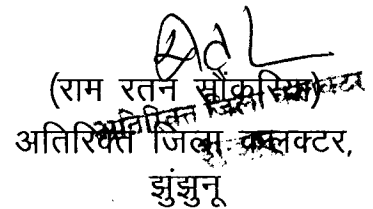 (राम रतन सौंकरिया)
अतिरिक्त जिला कलक्टर,
झुंझुनू